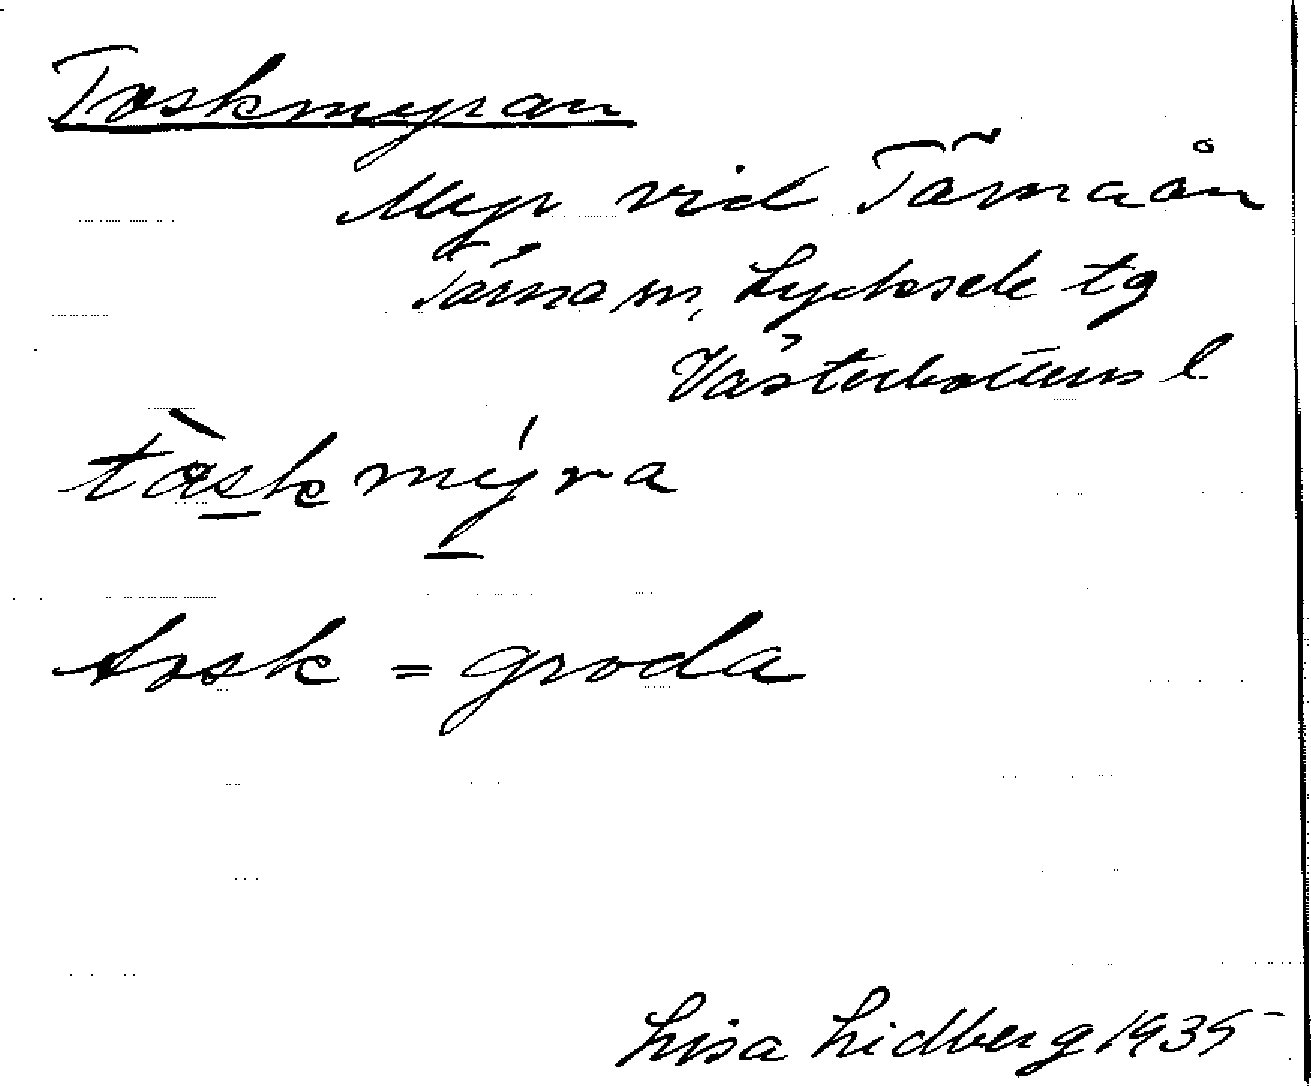 Toskmyran
Myr vid Tärnaån
Tärna sn, Lycksele tg
Västerbottens l.
tòskmýra
tosk = groda
Lisa Lidberg 1935